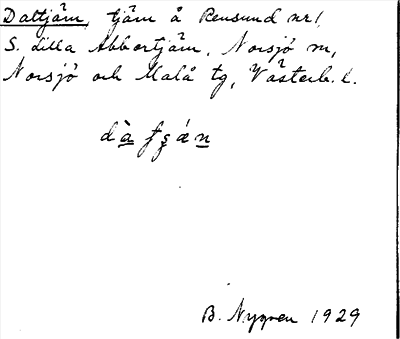 Dattjärn, tjärn å Rensund nr 1,
S. Lilla Abborrtjärn, Norsjö sn,
Norsjö och Malå tg, Västerb. l.
B. Nygren 1929